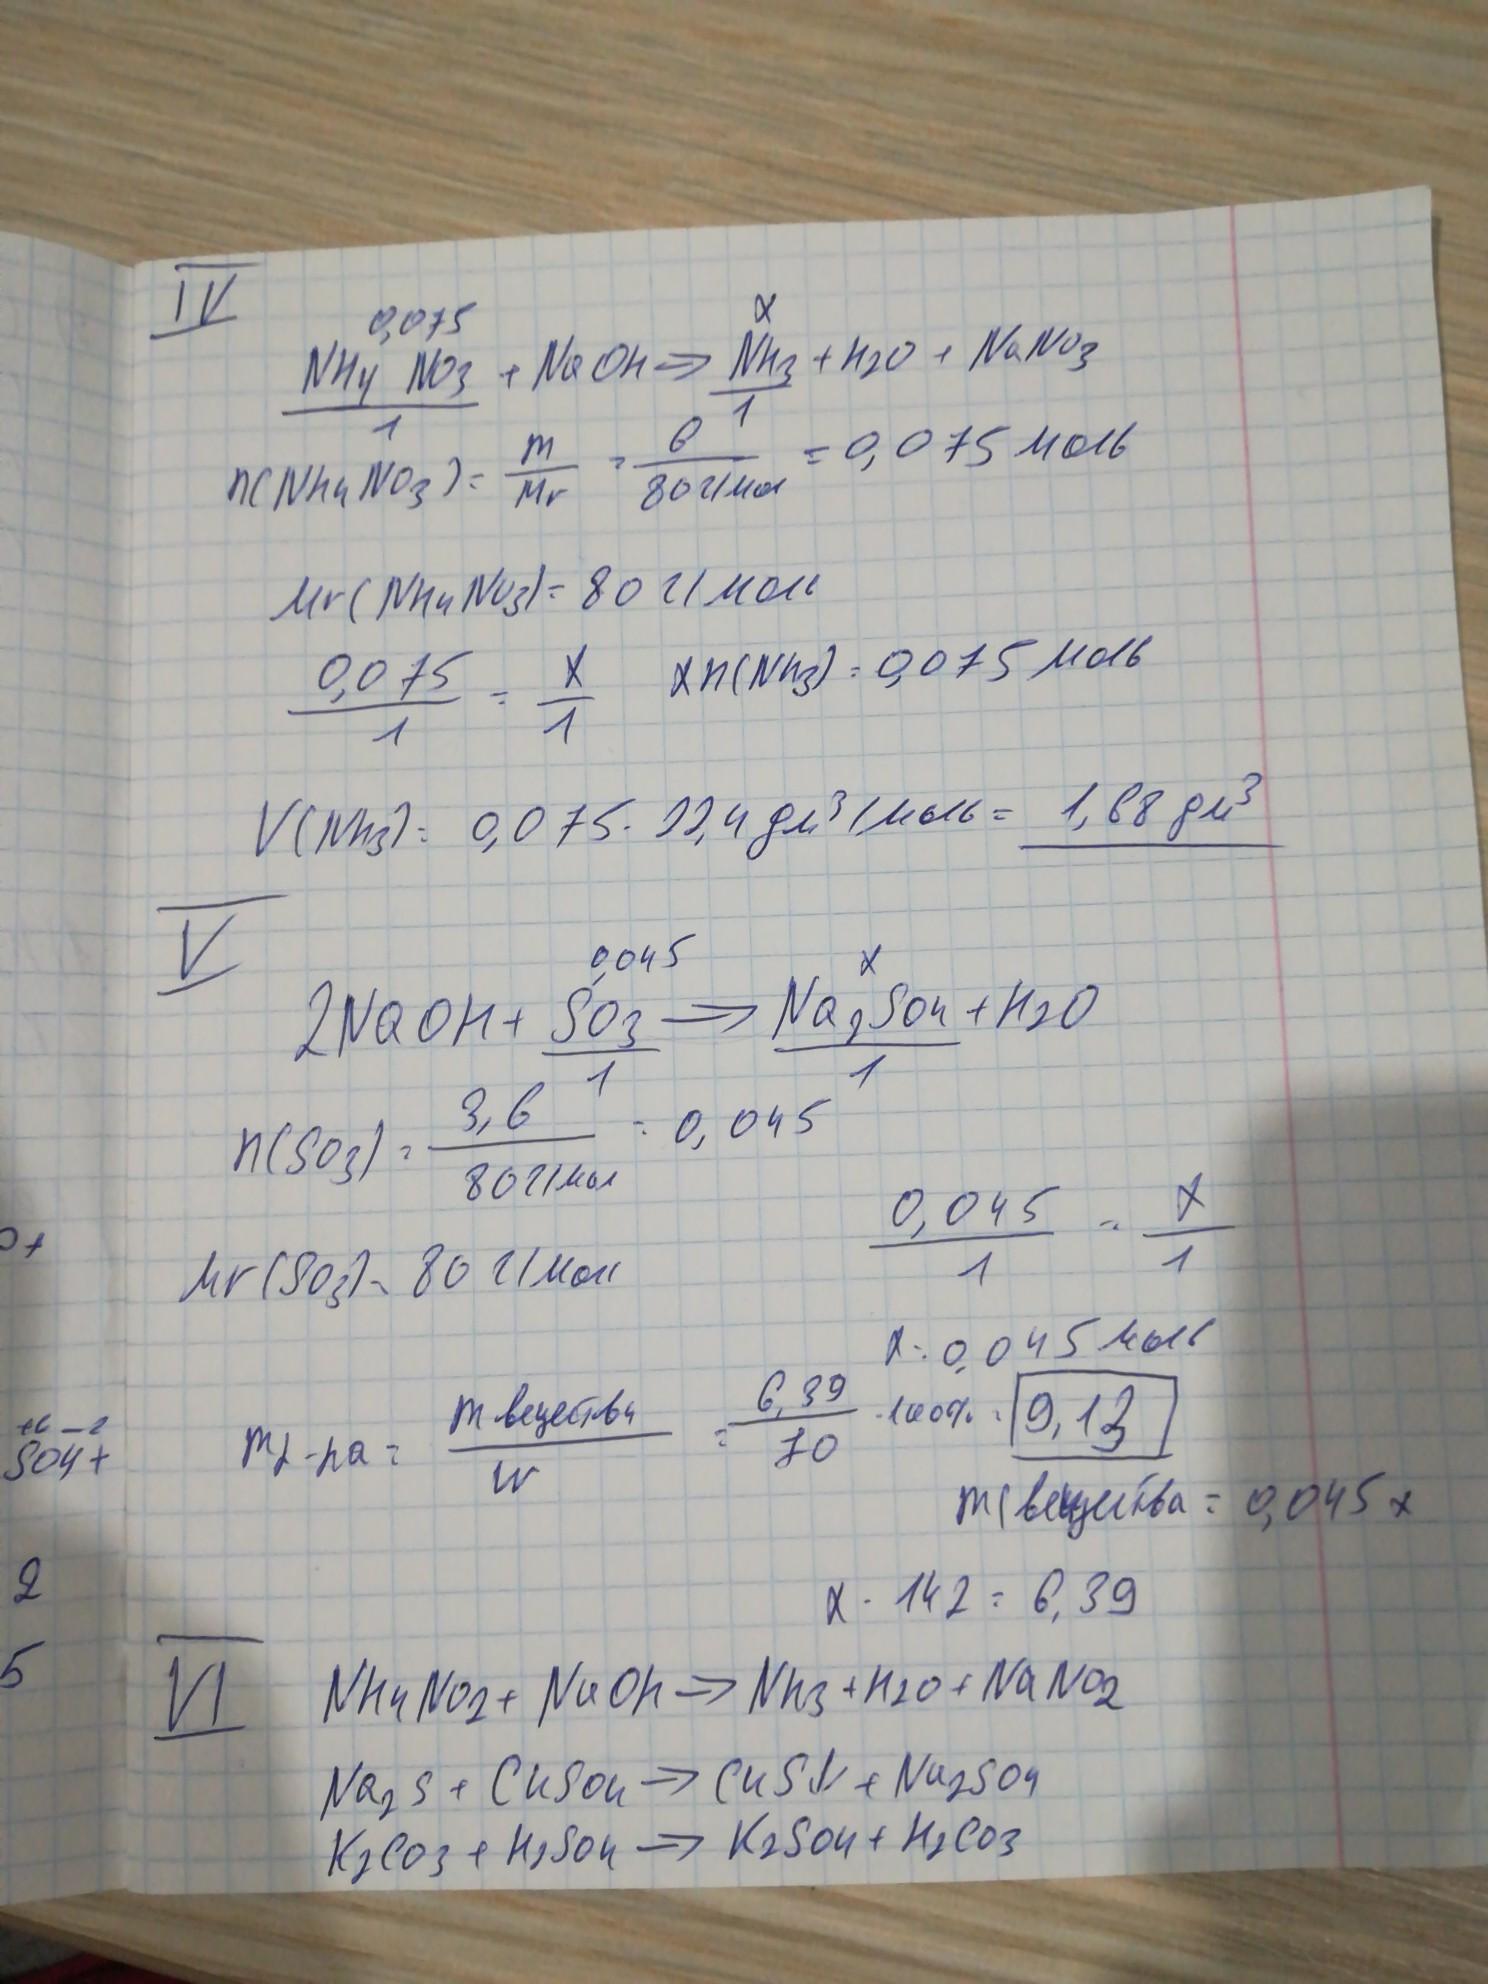 IV
0,075 x
NH4 NO3 + NaOH → NH3 + H2O + NaNO3
1 1
n(NH4NO3) = m/Mr = 6/80 г/мол = 0,075 моль
Mr(NH4NO3) = 80 г/моль
0,075/1 = x/1 x n(NH3) = 0,075 моль
V(NH3) = 0,075 · 22,4 дм³/моль = 1,68 дм³
V
0,045 x
2NaOH + SO3 → Na2SO4 + H2O
1 1
n(SO3) = 3,6/80 г/мол = 0,045
0,045/1 = x/1
Mr(SO3) = 80 г/мол
x = 0,045 моль
m р-ра = m вещества/W = 6,39/70 · 100% = 9,13
m(вещества = 0,045 x
x · 142 = 6,39
VI
NH4NO2 + NaOH → NH3 + H2O + NaNO2
Na2S + CuSO4 → CuS↓ + Na2SO4
K2CO3 + H2SO4 → K2SO4 + H2CO3
+6 -2
SO4 +
2
5